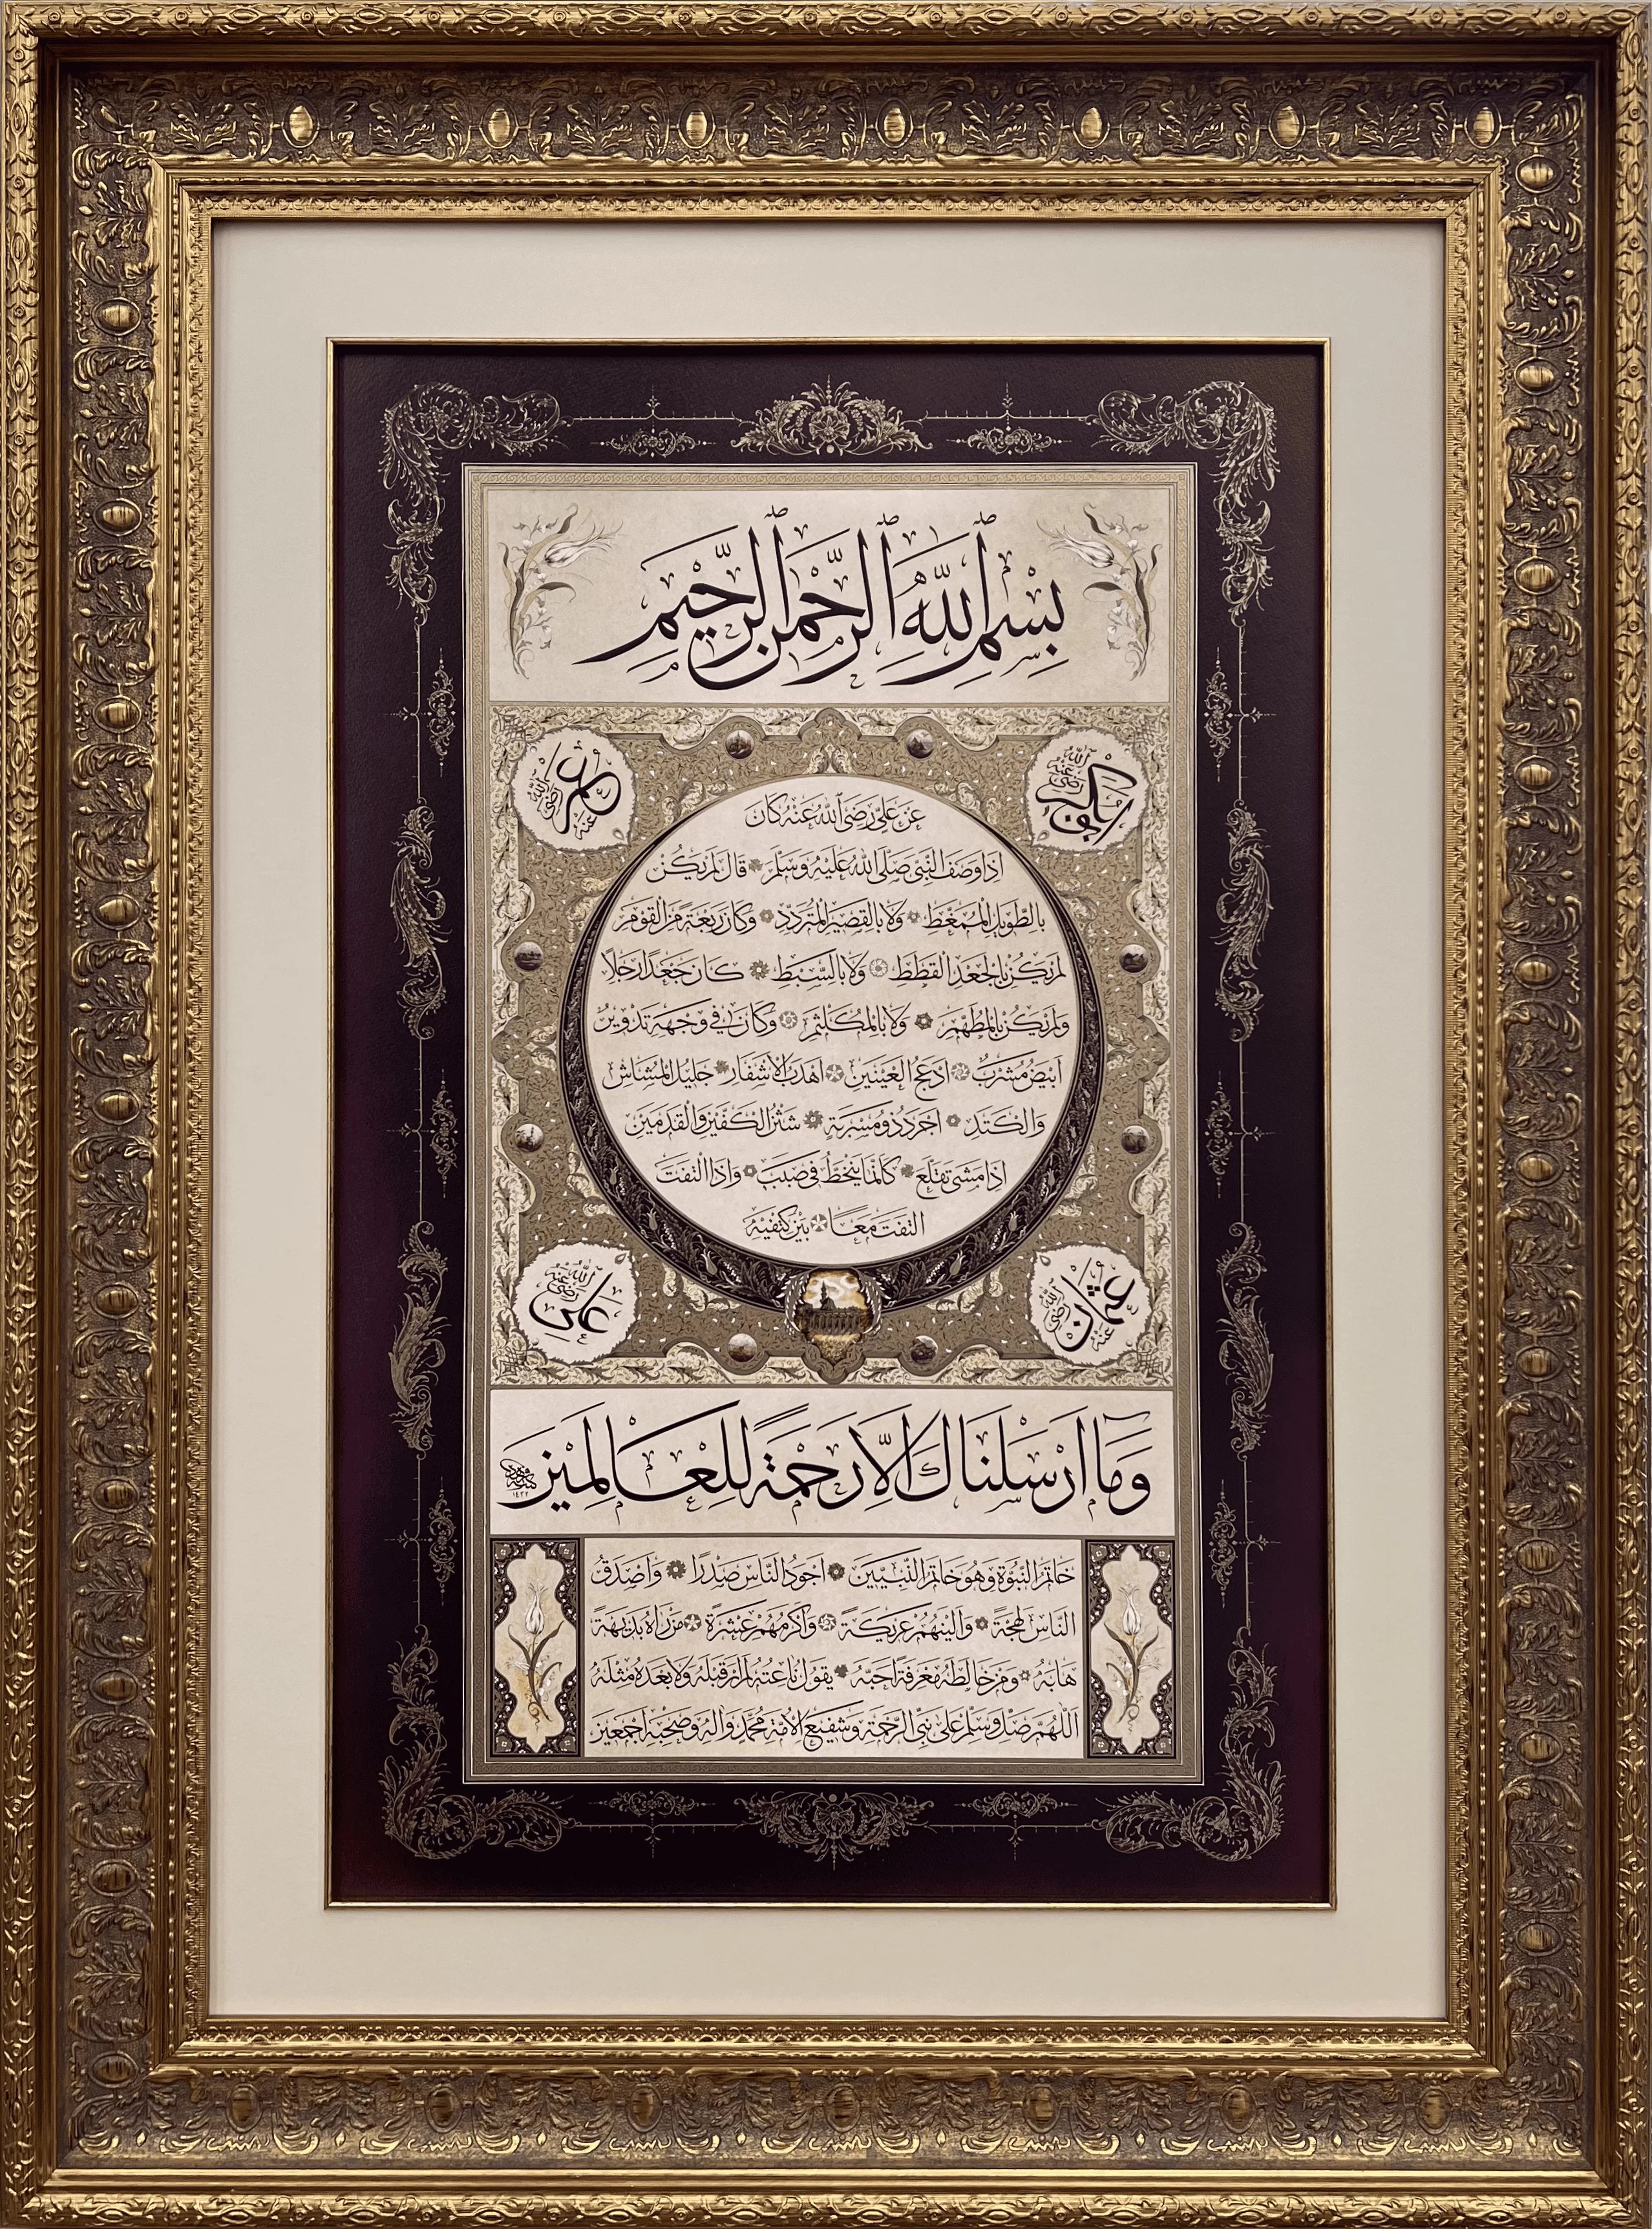 بِسْمِ اللّٰهِ الرَّحْمٰنِ الرَّحِيمِ
ابو بكر رضي الله عنه
عمر رضي الله عنه
عَنْ عَلِيٍّ رَضِيَ اللّٰهُ عَنْهُ كَانَ
اِذَا وَصَفَ النَّبِيَّ صَلَّى اللّٰهُ عَلَيْهِ وَسَلَّمَ قَالَ لَمْ يَكُنْ
بِالطَّوِيلِ الْمُمَّغِطِ وَلَا بِالْقَصِيرِ الْمُتَرَدِّدِ وَكَانَ رَبْعَةً مِنَ الْقَوْمِ
لَمْ يَكُنْ بِالْجَعْدِ الْقَطَطِ وَلَا بِالسَّبِطِ كَانَ جَعْدًا رَجِلًا
وَلَمْ يَكُنْ بِالْمُطَهَّمِ وَلَا بِالْمُكَلْثَمِ وَكَانَ فِي وَجْهِهِ تَدْوِيرٌ
اَبْيَضُ مُشْرَبٌ اَدْعَجُ الْعَيْنَيْنِ اَهْدَبُ الْاَشْفَارِ جَلِيلُ الْمُشَاشِ
وَالْكَتَدِ اَجْرَدُ ذُو مَسْرُبَةٍ شَثْنُ الْكَفَّيْنِ وَالْقَدَمَيْنِ
اِذَا مَشَى تَقَلَّعَ كَاَنَّمَا يَنْحَطُّ فِي صَبَبٍ وَاِذَا الْتَفَتَ
الْتَفَتَ مَعًا بَيْنَ كَتِفَيْهِ
عثمان رضي الله عنه
علي رضي الله عنه
وَمَا اَرْسَلْنَاكَ اِلَّا رَحْمَةً لِلْعَالَمِينَ
١٤٣٢
خَاتَمُ النُّبُوَّةِ وَهُوَ خَاتَمُ النَّبِيِّينَ اَجْوَدُ النَّاسِ صَدْرًا وَاَصْدَقُ
النَّاسِ لَهْجَةً وَاَلْيَنُهُمْ عَرِيكَةً وَاَكْرَمُهُمْ عِشْرَةً مَنْ رَآهُ بَدِيهَةً
هَابَهُ وَمَنْ خَالَطَهُ مَعْرِفَةً اَحَبَّهُ يَقُولُ نَاعِتُهُ لَمْ اَرَ قَبْلَهُ وَلَا بَعْدَهُ مِثْلَهُ
اَللّٰهُمَّ صَلِّ وَسَلِّمْ عَلَى نَبِيِّ الرَّحْمَةِ وَشَفِيعِ الْاُمَّةِ مُحَمَّدٍ وَآلِهِ وَصَحْبِهِ اَجْمَعِينَ